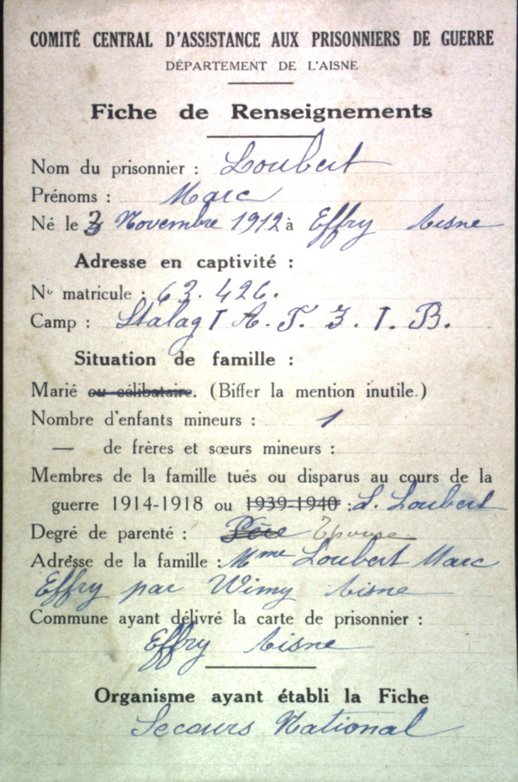 COMITÉ CENTRAL D'ASSISTANCE AUX PRISONNIERS DE GUERRE
DÉPARTEMENT DE L'AISNE
Fiche de Renseignements
Nom du prisonnier : Loubert
Prénoms : Marc
Né le 3 Novembre 1912 à Effry Aisne
Adresse en captivité :
No matricule : 63.426.
Camp : Stalag I A. T. 3. I. B.
Situation de famille :
Marié ou célibataire. (Biffer la mention inutile.)
Nombre d'enfants mineurs : 1
— de frères et sœurs mineurs :
Membres de la famille tués ou disparus au cours de la
guerre 1914-1918 ou 1939-1940 : L. Loubert
Degré de parenté : Père Epouse
Adresse de la famille : Mme Loubert Marc
Effry par Wimy Aisne
Commune ayant délivré la carte de prisonnier :
Effry Aisne
Organisme ayant établi la Fiche
Secours National